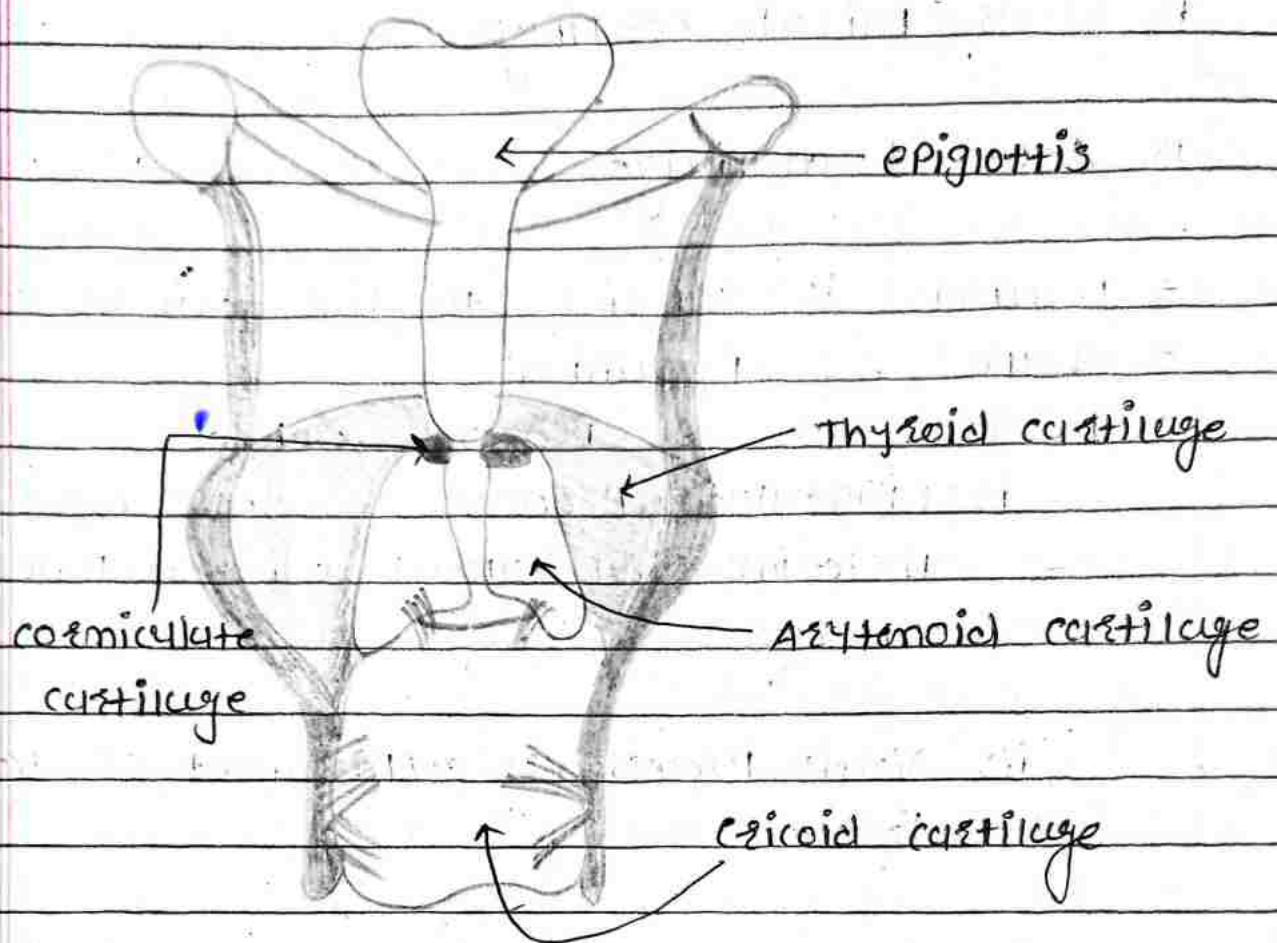 epiglottis
Thyroid cartilage
cormiculate
cartilage
Arytenoid cartilage
Cricoid cartilage